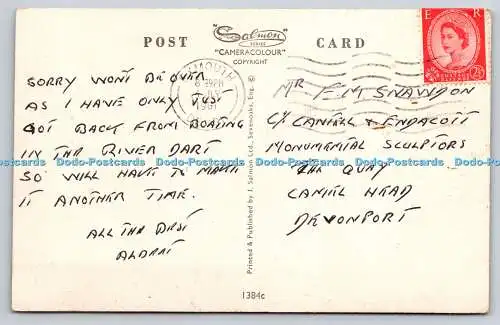 POST
Salmon
SERIES
"CAMERACOLOUR"
COPYRIGHT
CARD
E R
SORRY WONT BE OVER
AS I HAVE ONLY JUST
GOT BACK FROM BOATING
IN THE RIVER DART
SO WILL HAVE TO MAKE
IT ANOTHER TIME.
ALL THE BEST
Printed & Published by J. Salmon Ltd., Sevenoaks, Eng. ©
MR F. M SNAWDON
C/O CANIELL & ENDACOTT
MONUMENTAL SCULPTORS
THE QUAY
CANIEL HEAD
DEVONPORT
Dodo-Postcards Dodo-Postcards Dodo-Postcards Dodo-Postcards Dodo-Postcards
1384c